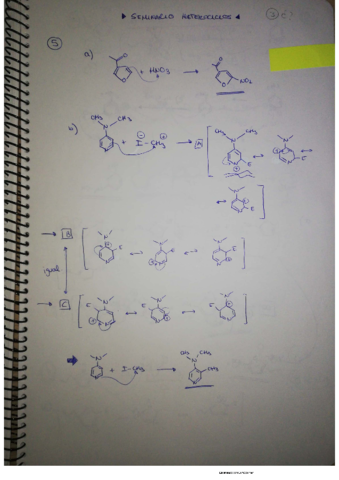 ▶ SEMINARIO HETEROCICLOS ◀
⑤
a)
+ HNO₃ → NO₂
b)
CH₃ N CH₃
+ I⊖ - CH₃⊕ → A
E
→ B
E
igual
→ C
E E E
CH₃ N CH₃
+ I-CH₃ → CH₃